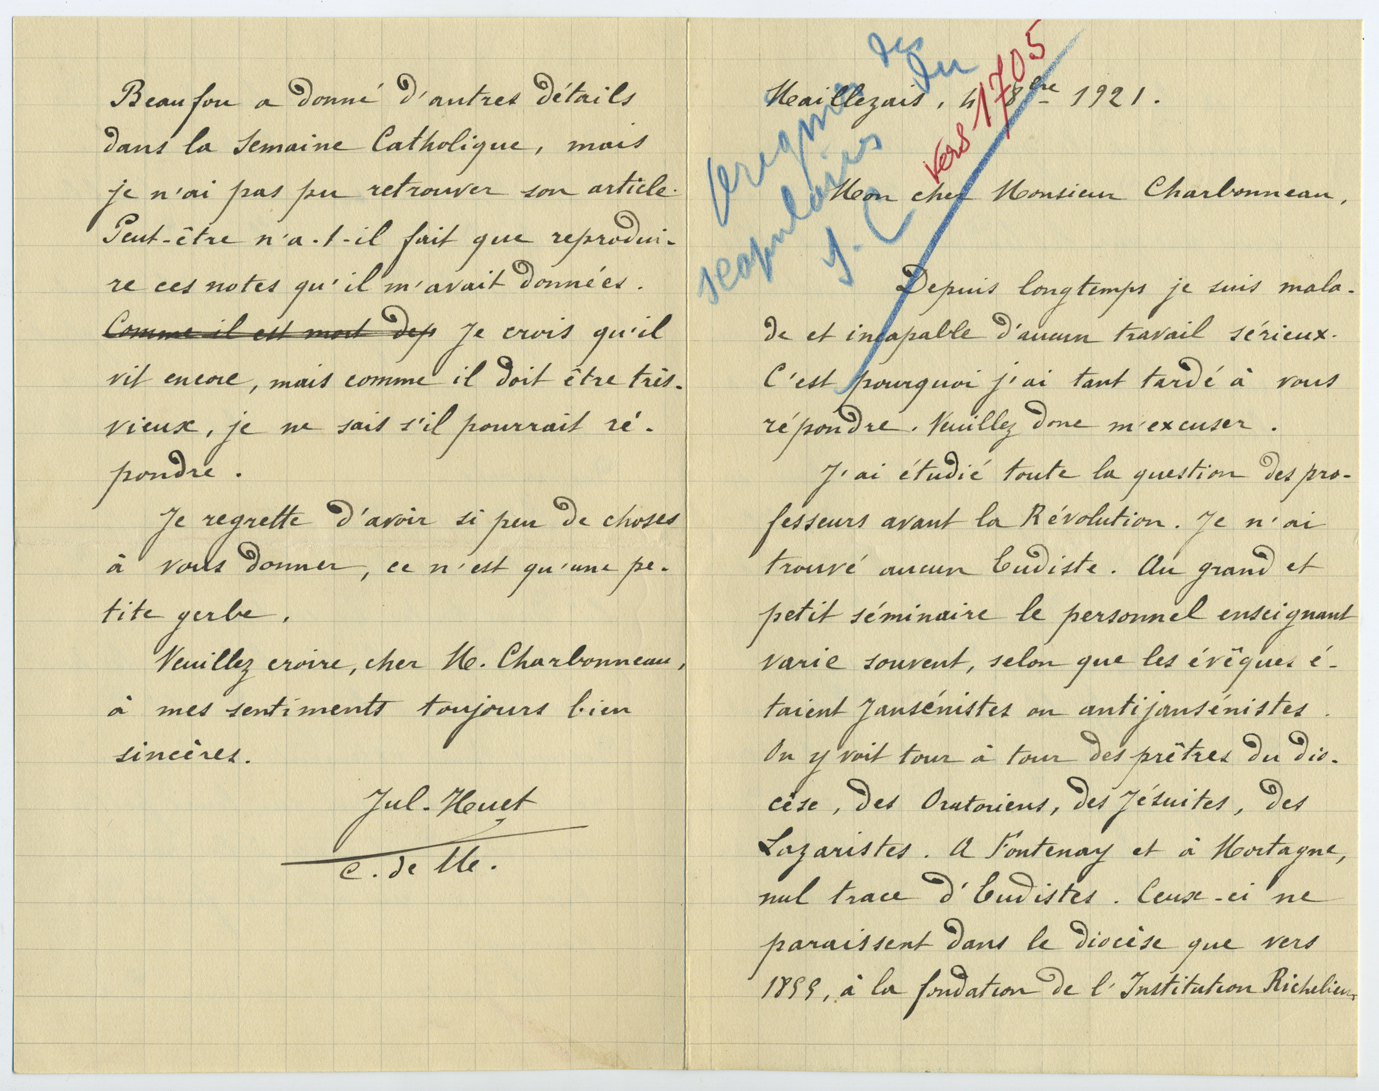 Maillezais, 4 8bre 1921.
vers 1705
Origine des
scapulaires du
S. C
Mon cher Monsieur Charbonneau,
Depuis longtemps je suis mala-
de et incapable d'aucun travail sérieux.
C'est pourquoi j'ai tant tardé à vous
répondre. Veuillez donc m'excuser.
J'ai étudié toute la question des pro-
fesseurs avant la Révolution. Je n'ai
trouvé aucun Eudiste. Au grand et
petit séminaire le personnel enseignant
varie souvent, selon que les évêques é-
taient Jansénistes ou antijansénistes.
On y voit tour à tour des prêtres du dio-
cèse, des Oratoriens, des Jésuites, des
Lazaristes. A Fontenay et à Mortagne,
nul trace d'Eudistes. Ceux-ci ne
paraissent dans le diocèse que vers
1855, à la fondation de l'Institution Richelieu.
Beaufou a donné d'autres détails
dans la Semaine Catholique, mais
je n'ai pas pu retrouver son article.
Peut-être n'a-t-il fait que reprodui-
re ces notes qu'il m'avait données.
Comme il est mort dep Je crois qu'il
vit encore, mais comme il doit être très-
vieux, je ne sais s'il pourrait ré-
pondre.
Je regrette d'avoir si peu de choses
à vous donner, ce n'est qu'une pe-
tite gerbe.
Veuillez croire, cher M. Charbonneau,
à mes sentiments toujours bien
sincères.
Jul. Huet
C. de M.